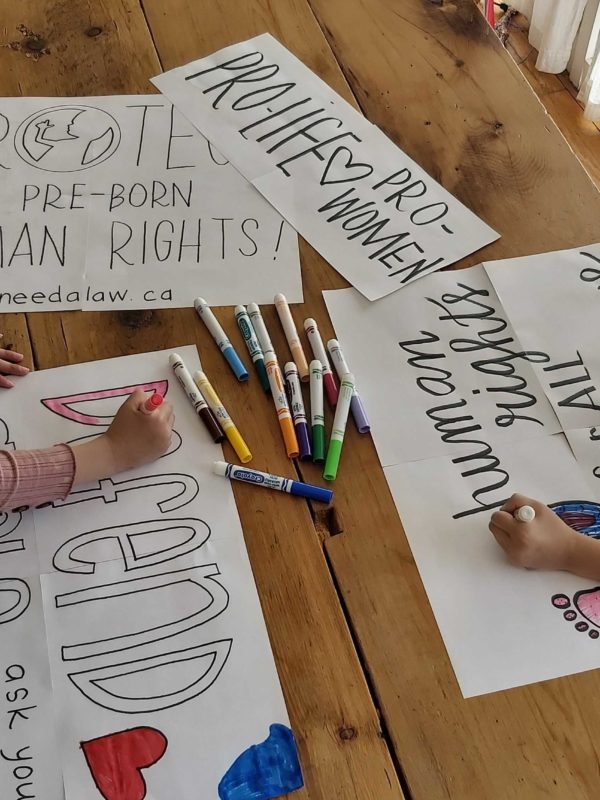 ROTEC
PRE-BORN
MAN RIGHTS!
needalaw. ca
PRO-
LIFE
PRO-
WOMEN
human
rights
ALL
Defend
ask you
Crayola